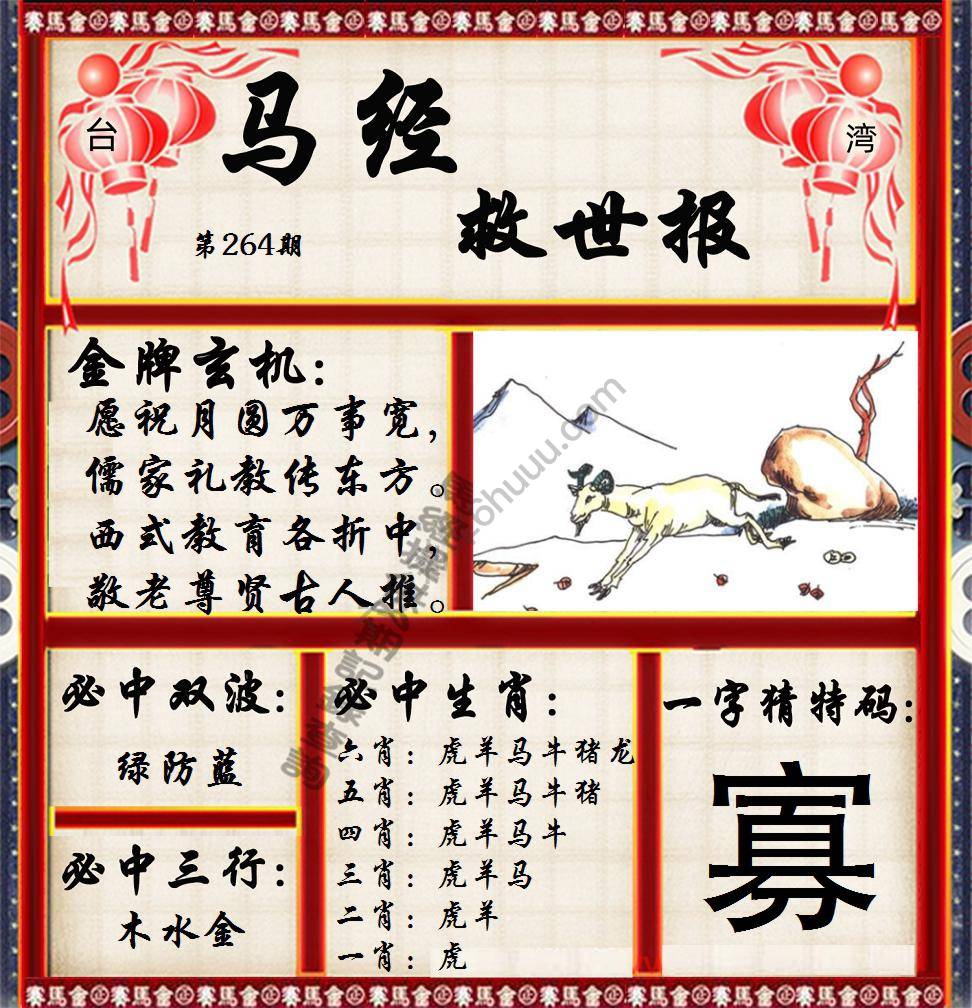 賽馬會
台
湾
马经
救世报
第264期
金牌玄机：
愿祝月圆万事宽，
儒家礼教传东方。
西式教育各折中，
敬老尊贤古人推。
必中双波：
绿防蓝
必中三行：
木水金
必中生肖：
六肖：虎羊马牛猪龙
五肖：虎羊马牛猪
四肖：虎羊马牛
三肖：虎羊马
二肖：虎羊
一肖：虎
一字猜特码：
寡